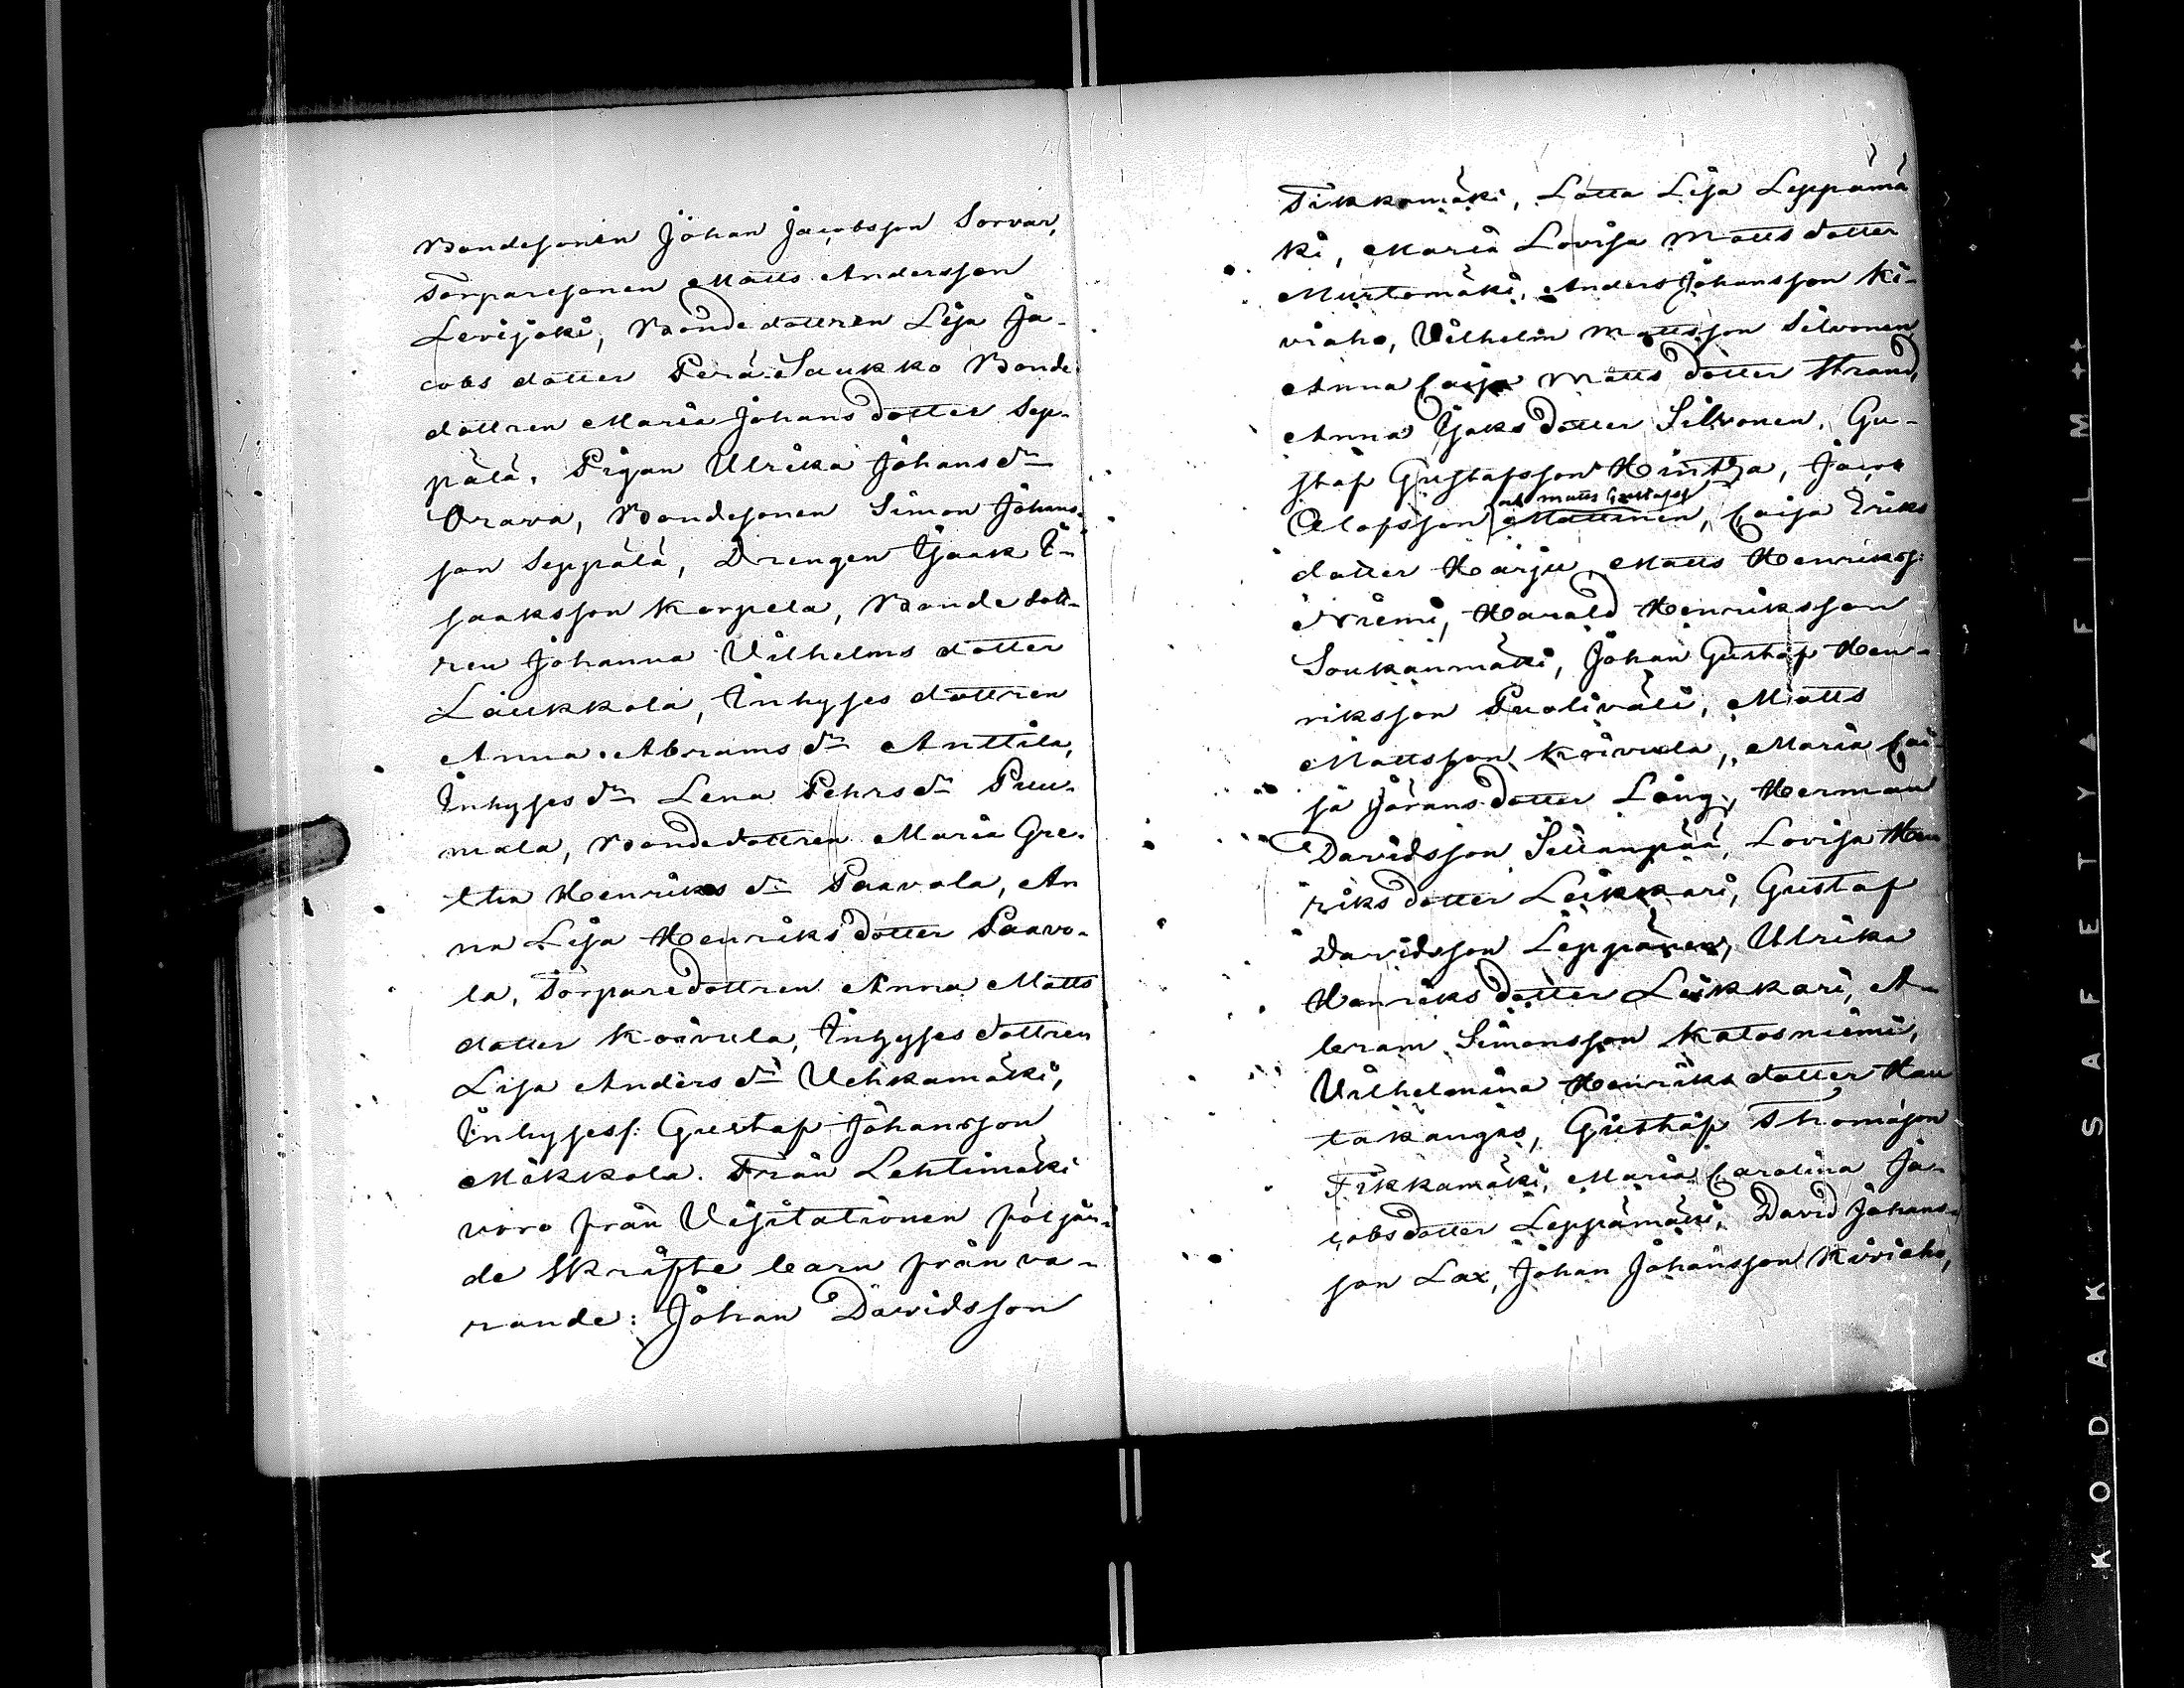 Bondesonen Johan Jacobsson Sorvar,
Torparesonen Matts Andersson
Levijoki, Bondedottren Lisa Ja-
cobs dotter Perä-Saukko Bonde-
dottren Maria Johans dotter Sep-
pälä. Pigan Ulrika Johans dr
Orava, Bondesonen Simon Johans-
son Seppälä, Drengen Isaak I-
saaksson Korpela, Bonde dott-
ren Johanna Vilhelms dotter
Laukkola, Inhyses dottren
Anna Abrams dr Anttila,
Inhyses dr Lena Pehrs dr Puu-
mala, Bondedottren Maria Gre-
tha Henriks dr Paavola, An
na Lisa Henriks dotter Paavo-
la, Torparedottren Anna Matts
dotter Koivula, Inhyses dottren
Lisa Anders dr Vehkamäki,
Inhyses s: Gustaf Johansson
Mikkola. Från Lehtimäki
voro från Visitationen följan-
de Skrifte barn från va-
rande: Johan Davidsson
Tikkamäki, Lotta Lisa Leppämä
ki, Maria Lovisa Matts dotter
Murtomäki, Anders Johansson Ki-
viaho, Vilhelm Mattsson Silvonen
Anna Caisa Matts dotter Strand,
Anna Isaks dotter Silvonen, Gu-
staf Gustafsson Hintza, Jacob
och Matts Gustafss
Olofsson Mattinen, Caisa Eriks
dotter Harju, Matts Henrikss:
Niemi, Harald Henriksson
Soukanmäki, Johan Gustaf Hen-
riksson Puoliväli, Matts
Mattsson Koivula, Maria Cai-
sa Görans dotter Lång, Herman
Davidsson Sillanpää, Lovisa Hen
riks dotter Leikkari, Gustaf
Davidsson Leppänen, Ulrika
Henriks dotter Leikkari, A-
bram Simonsson Katosniemi,
Vilhelmina Henriks dotter Hau
takangas, Gustaf Thomasson
Tikkamäki, Maria Carolina Ja-
cobs dotter Leppämäki, David Johans-
son Lax, Johan Johansson Kiviaho,
KODAK SAFETY FILM